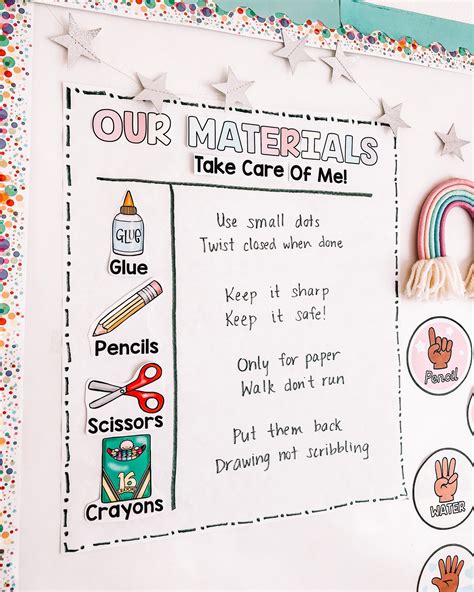 OUR MATERIALS
Take Care Of Me!
GLUE
Glue
Use small dots
Twist closed when done
Pencils
Keep it sharp
Keep it safe!
Scissors
Only for paper
Walk don't run
16
Crayons
Put them back
Drawing not scribbling
Pencil
WATER